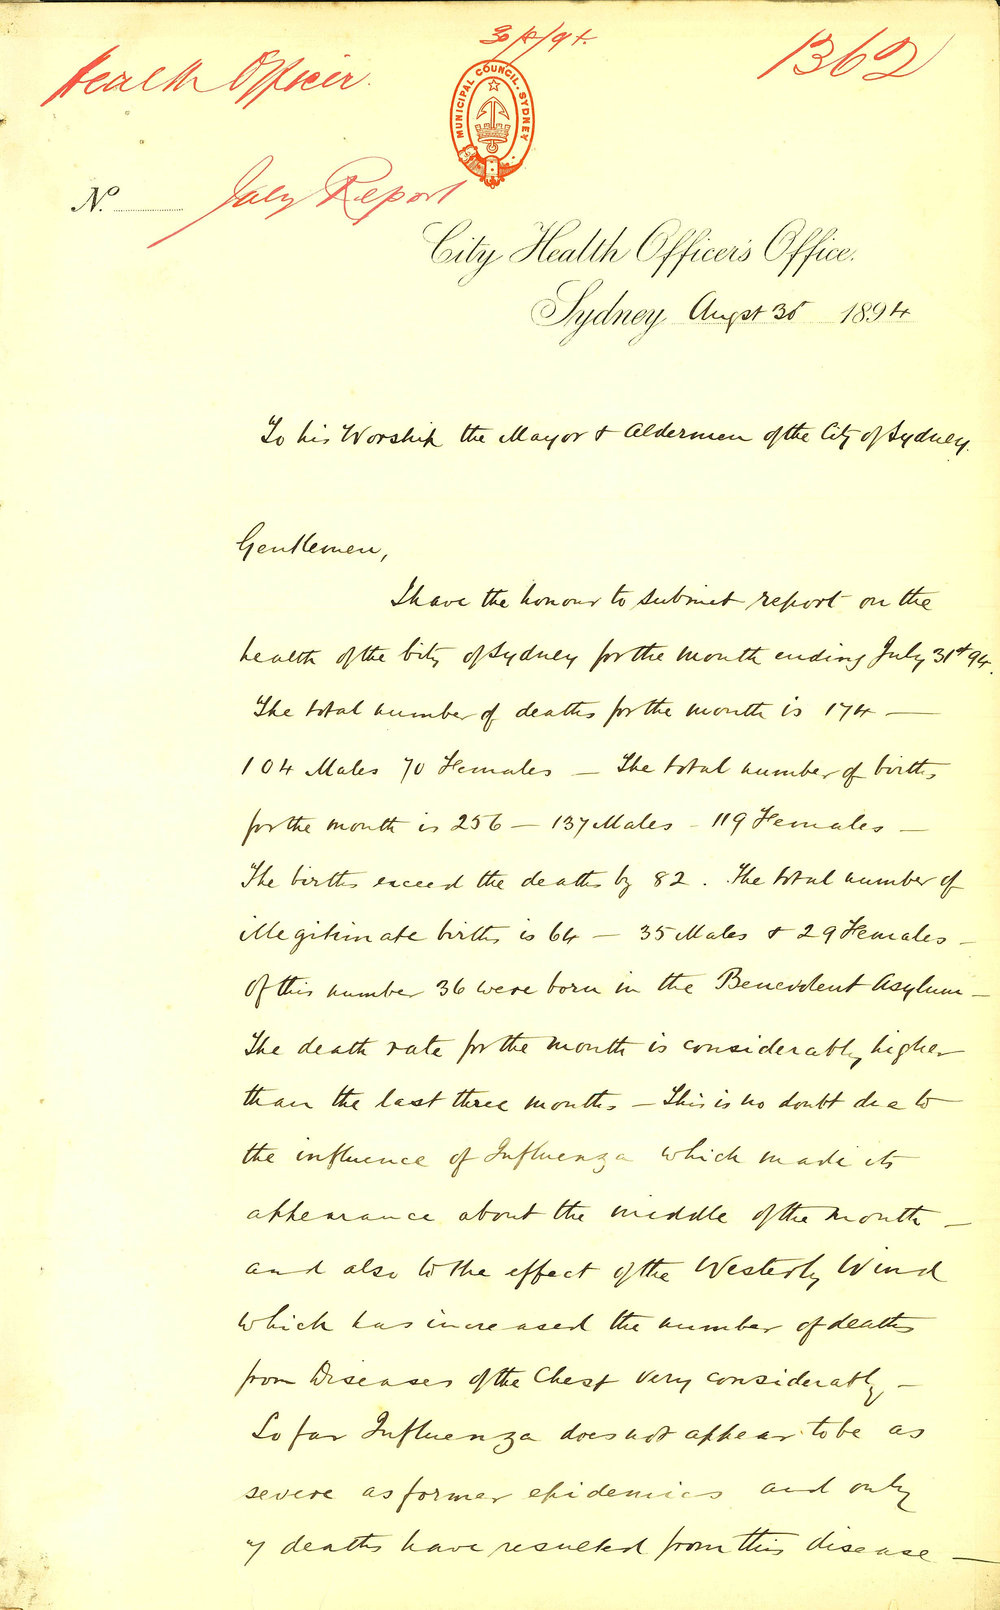 30/8/94.
Health Officer.
1362
MUNICIPAL COUNCIL. SYDNEY
No.
July Report
City Health Officer's Office.
Sydney Augst 30 1894
To his Worship the Mayor & Aldermen of the City of Sydney.
Gentlemen,
I have the honour to submit report on the
health of the City of Sydney for the month ending July 31st 94.
The total number of deaths for the month is 174 —
104 Males 70 Females — The total number of births
for the month is 256 — 137 Males - 119 Females —
The births exceed the deaths by 82. The total number of
illegitimate births is 64 — 35 Males & 29 Females —
Of this number 36 were born in the Benevolent Asylum —
The death rate for the month is considerably higher
than the last three months — This is no doubt due to
the influence of Influenza which made its
appearance about the middle of the month —
and also to the effect of the Westerly Wind
which has increased the number of deaths
from Diseases of the Chest very considerably —
So far Influenza does not appear to be as
severe as former epidemics and only
7 deaths have resulted from this disease —